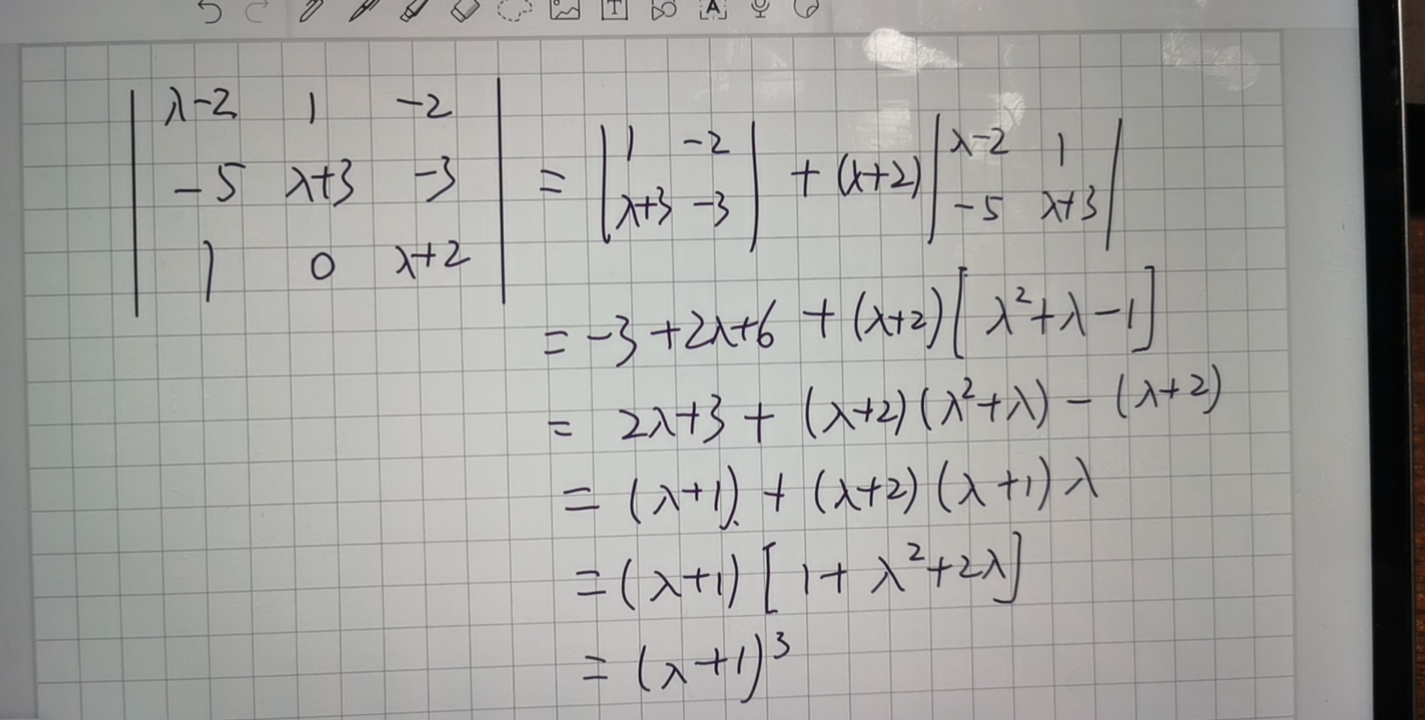 | λ-2 1 -2 |
| -5 λ+3 -3 | = | 1 -2 | + (λ+2) | λ-2 1 |
| 1 0 λ+2 | | λ+3 -3 | | -5 λ+3 |
= -3 + 2λ+6 + (λ+2) [ λ²+λ-1 ]
= 2λ+3 + (λ+2) (λ²+λ) - (λ+2)
= (λ+1) + (λ+2) (λ+1) λ
= (λ+1) [ 1 + λ²+2λ ]
= (λ+1)³